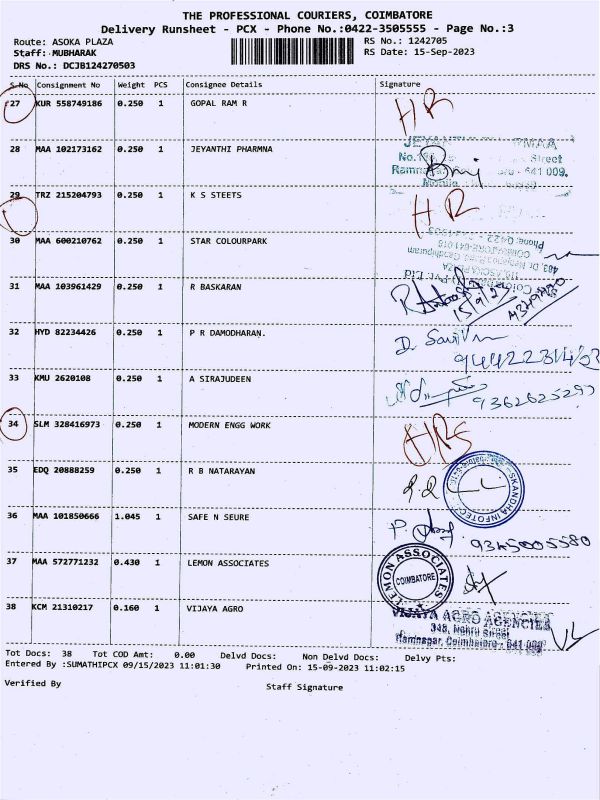 THE PROFESSIONAL COURIERS, COIMBATORE
Delivery Runsheet - PCX - Phone No.:0422-3505555 - Page No.:3
Route: ASOKA PLAZA RS No.: 1242705
Staff: MUBHARAK RS Date: 15-Sep-2023
DRS No.: DCJB124270503
S.No Consignment No Weight PCS Consignee Details Signature
27 KUR 558749186 0.250 1 GOPAL RAM R HR
28 MAA 102173162 0.250 1 JEYANTHI PHARMNA
Street
641 009.
29 TRZ 215204793 0.250 1 K S STEETS HR
30 MAA 600210762 0.250 1 STAR COLOURPARK
31 MAA 103961429 0.250 1 R BASKARAN
15/9/23
32 HYD 82234426 0.250 1 P R DAMODHARAN.
33 KMU 2620108 0.250 1 A SIRAJUDEEN
9362625297
34 SLM 328416973 0.250 1 MODERN ENGG WORK
35 EDQ 20888259 0.250 1 R B NATARAYAN
SKANDHA INFOTEC
36 MAA 101850666 1.045 1 SAFE N SEURE
9345005580
37 MAA 572771232 0.430 1 LEMON ASSOCIATES
LEMON ASSOCIATES
COIMBATORE
38 KCM 21310217 0.160 1 VIJAYA AGRO
VIJAYA AGRO AGENCIES
348, Nehru Street
Ramnagar, Coimbatore - 641 009.
Tot Docs: 38 Tot COD Amt: 0.00 Delvd Docs: Non Delvd Docs: Delvy Pts:
Entered By :SUMATHIPCX 09/15/2023 11:01:30 Printed On: 15-09-2023 11:02:15
Verified By Staff Signature